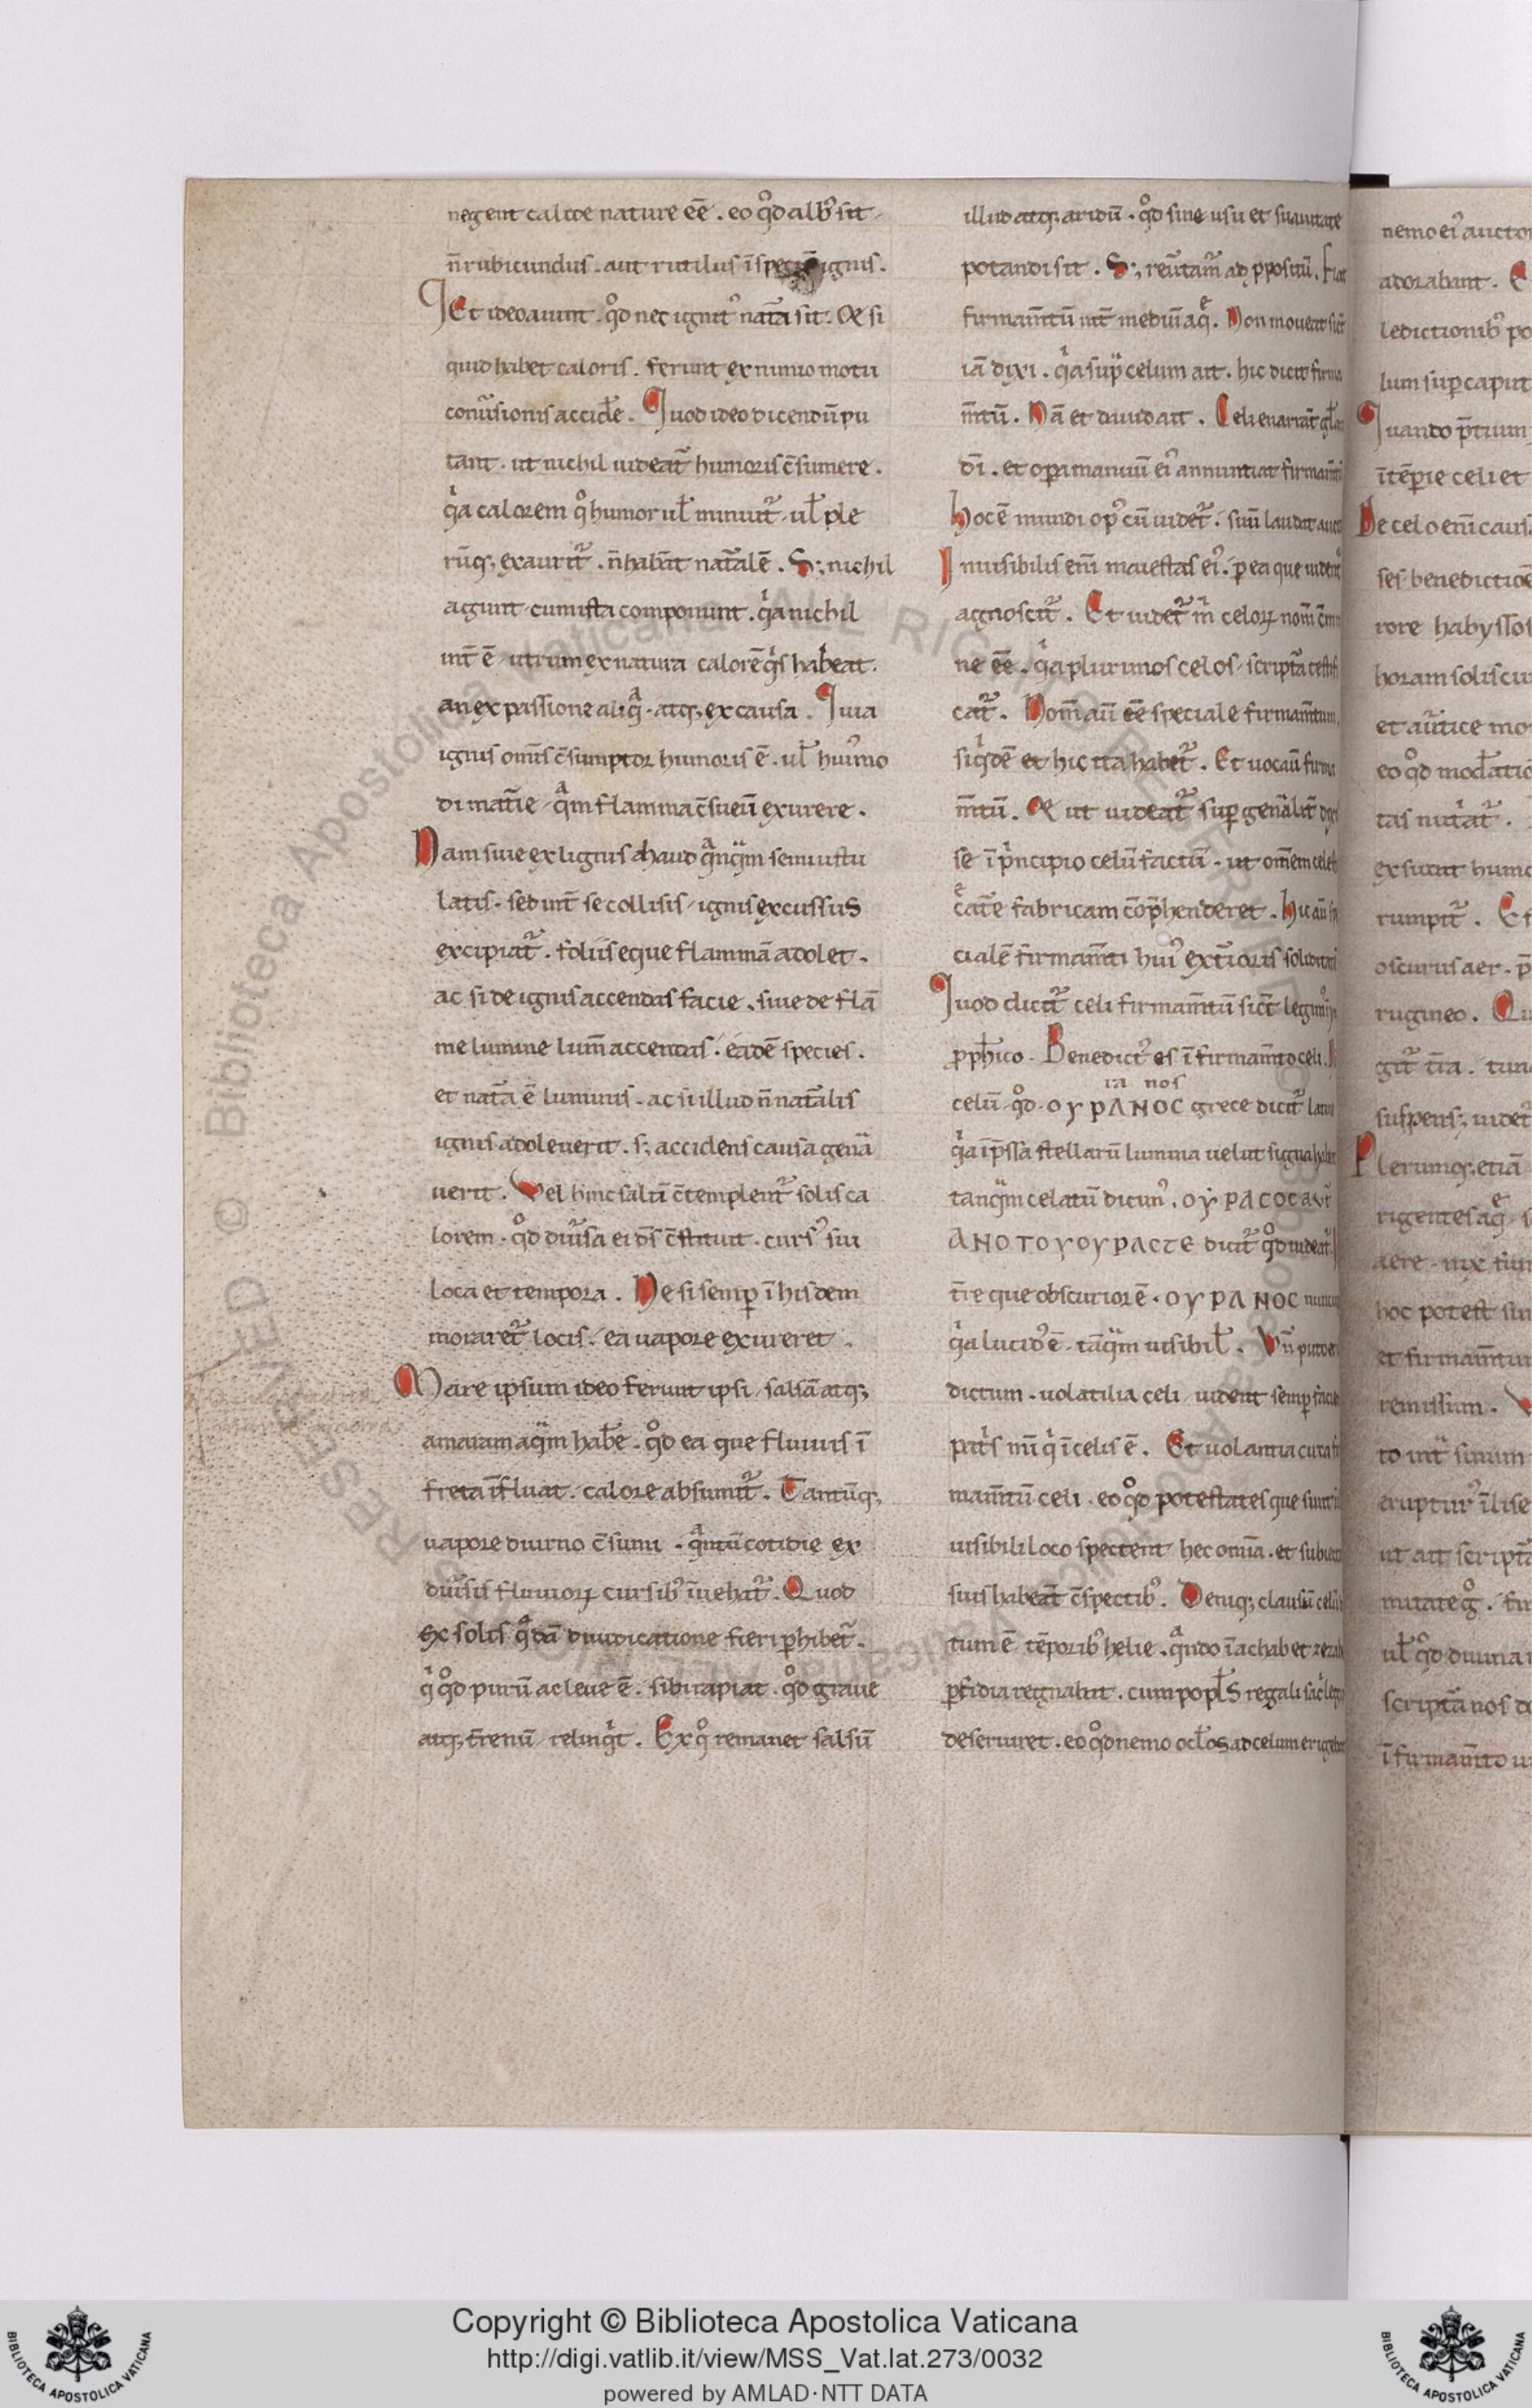 negent calide nature eē . eo qđ albꝰ sit
n̄ rubicundus . aut rutilus ī speciē ignis .
Et ideo aiunt . qđ nec ignitꝰ nat̄a sit . Et si
quid habet caloris . ferunt ex nimio motu
conūsionis accid̄e . Quod ideo dicendū pu
tant . ut nichil uideat᷑ humoris c̄sumere .
qͥa calorem qͦ humor ul̄ minuit᷑ . ul̄ ple
rūq; exaurit᷑ . n̄ habūt nat̄alē . S; nichil
agunt cum ista componunt . qͥa nichil
int̄ ē utrum ex natura calorē qͥs hab̄eat .
an ex passione aliqͣ . atq; ex causa . Quia
ignis om̄is c̄sumptor humoris ē . ul̄ huiꝰmo
di mat̄ie qͣm flamma c̄sueū exurere .
Nam siue ex lignis ahaud qͣnqͣm semiustu
latis . sed int̄ se collisis ignis excussus
excipiat᷑ . foliiseque flammā adolet .
ac si de ignis accendas facie . siue de flā
me lumine lum̄ accendas . eadē species .
et nat̄a ē luminis . ac si illud n̄ nat̄alis
ignis adoleuerit . s; accidens causa gen̄a
uerit . Vel hinc saltī c̄templent᷑ solis ca
lorem . qđ diūsa ei d̄s c̄stituit . cursꝰ sui
loca et tempora . Ne si semp̄ ī hisdem
moraret᷑ locis . ea uapore exureret .
Mare ipsum ideo ferunt ipsi salsā atq;
amaram aqͣm hab̄e . qđ ea que fluuiis ī
freta īfluat . calore absumit᷑ . Tantūq;
uapore diurno c̄sumi . qͣntū cotidie ex
diūsis fluuioꝝ cursibꝰ īuehat᷑ . Quod
ex solis qͣdā diiudicatione fieri phibet᷑ .
qͥ qđ purū ac leue ē . sibi rapiat . qđ graue
atq; t̄renū relinqͥt . Ex qͦ remanet salsū
illud atq; aridū . qđ sine usu et suauitate
potandi sit . S; reūtam᷑ ad ppositū . Fiat
firmam̄tū int̄ mediū aqͤ . Non moueat sicut
iā dixi . qͥa sup̄ celum ait . hic dicit firma
m̄tū . Nā et dauid ait . Celi enarrāt gl̄am
dī . et opa manuū eiꝰ annuntiat firmam̄tū
Hoc ē mundi opꝰ cū uidet᷑ . suū laudat
Inuisibilis enī maiestas eiꝰ . p ea que uident᷑
agnoscit᷑ . Et uidet᷑ m̄ celoꝝ nom̄
ne eē . qͥa plurimos celos script̄a
cat᷑ . Nom̄ aū eē speciale firmam̄tum
siqͥdē et hic ita habet᷑ . Et uocaū firma
m̄tū . Et ut uideat᷑ sup̄ gen̄alit̄
se ī pͥncipio celū factū . ut om̄em celeb
cat̄e fabricam c̄op̄henderet . Hic aū spe
cialē firmam̄ti huiꝰ ext̄ioris soliditatē
Quod dicit᷑ celi firmam̄tū sict̄ legimꝰ
pph̄ico . Benedictꝰ es ī firmam̄to celi .
ra nos
celū . qđ . ΟΥΡΑΝΟC grece dicit᷑ latine
qͥa īp̄ssa stellarū lumina uelut signa
tanqͣm celatū dicunꝰ . ΟΥΡΑCΟC aut̄
ΑΝΟΤΟΥΟΥΡΑCΤΕ dicit᷑ qđ uideat᷑
t̄re que obscurior ē . ΟΥΡΑΝΟC
qͥa lucidꝰ ē . tāqͣm uisibil̄ . Vn̄ puto et
dictum . uolatilia celi uident semp facie
patͥs m̄i qͥ ī celis ē . Et uolantia circa fir
mam̄tū celi . eo qđ potestates que sunt ī
uisibili loco spectent hec om̄ia . et subiecta
suis habeāt c̄spectibꝰ . Deniq; clausū celū
tum ē tēporibꝰ helie . qͣndo ī achab et
pfidia regnabat . cum popl̄s regali
deseruiret . eo qđ nemo ocl̄os ad celum erigebat
nemo eiꝰ aucto
adorabant .
ledictionibꝰ po
lum sup caput
Quando p̄tium
ītēperie celi et
De celo enī caus
ses benedictiōe
rore habyssos
horam solis cu
et aūtice mo
eo qđ mod̄atio
tas nutͥat᷑ .
ex sudat humo
rumpit᷑ . Et
oscurus aer . p̄
rugineo . Qu
git᷑ t̄ra . tun
suspens; uidet᷑
Plerumq; etiā
rigentes aqͤ s
aere . nix fun
hoc potest sin
et firmam̄tum
remissam . V
to int̄ sinum
eruptur᷑ ī lise
ut ait script̄a
mitate gͦ . fir
ul̄ qđ diuina
script̄a nos d
ī firmam̄to u
Copyright © Biblioteca Apostolica Vaticana
http://digi.vatlib.it/view/MSS_Vat.lat.273/0032
powered by AMLAD·NTT DATA